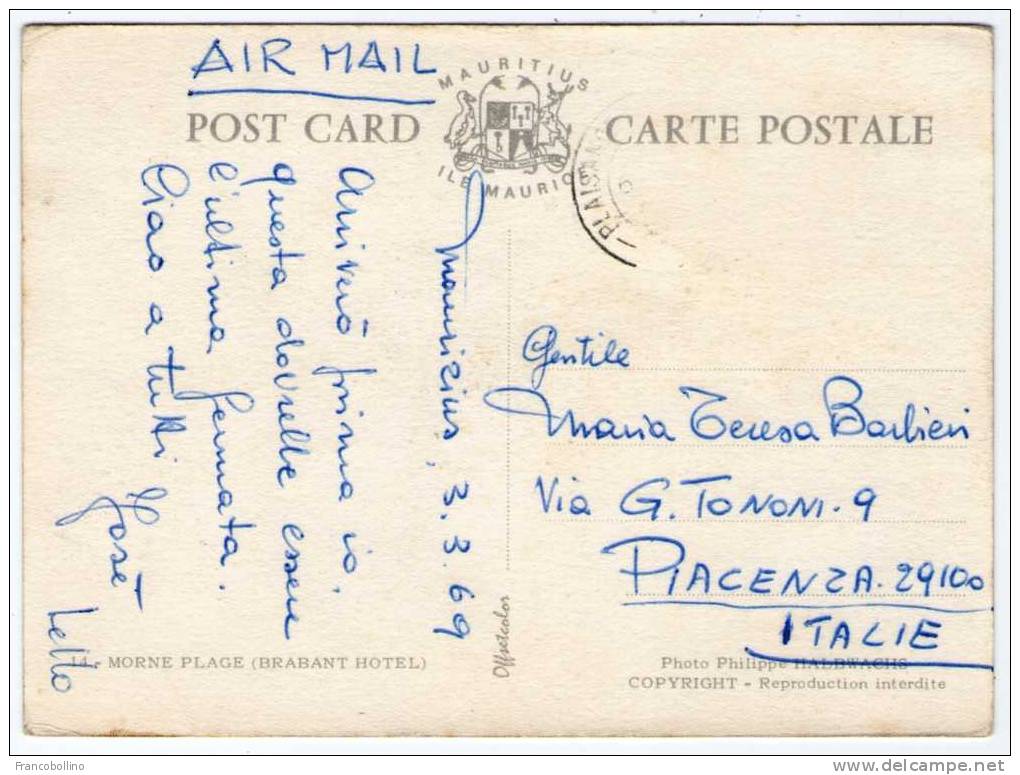 AIR MAIL
POST CARD
MAURITIUS
ILE MAURIC
CARTE POSTALE
PLAISAN
Maurizius, 3.3.69
Arriverò prima io.
questa dovrebbe essere
l'ultima fermata.
Ciao a tutti
José
Lello
Gentile
Maria Teresa Barbieri
Via G. TONONI. 9
PIACENZA. 29100
ITALIE
Offsetcolor
14 - MORNE PLAGE (BRABANT HOTEL)
Photo Philippe HALBWACHS
COPYRIGHT - Reproduction interdite
Francobollino
www.delcampe.net